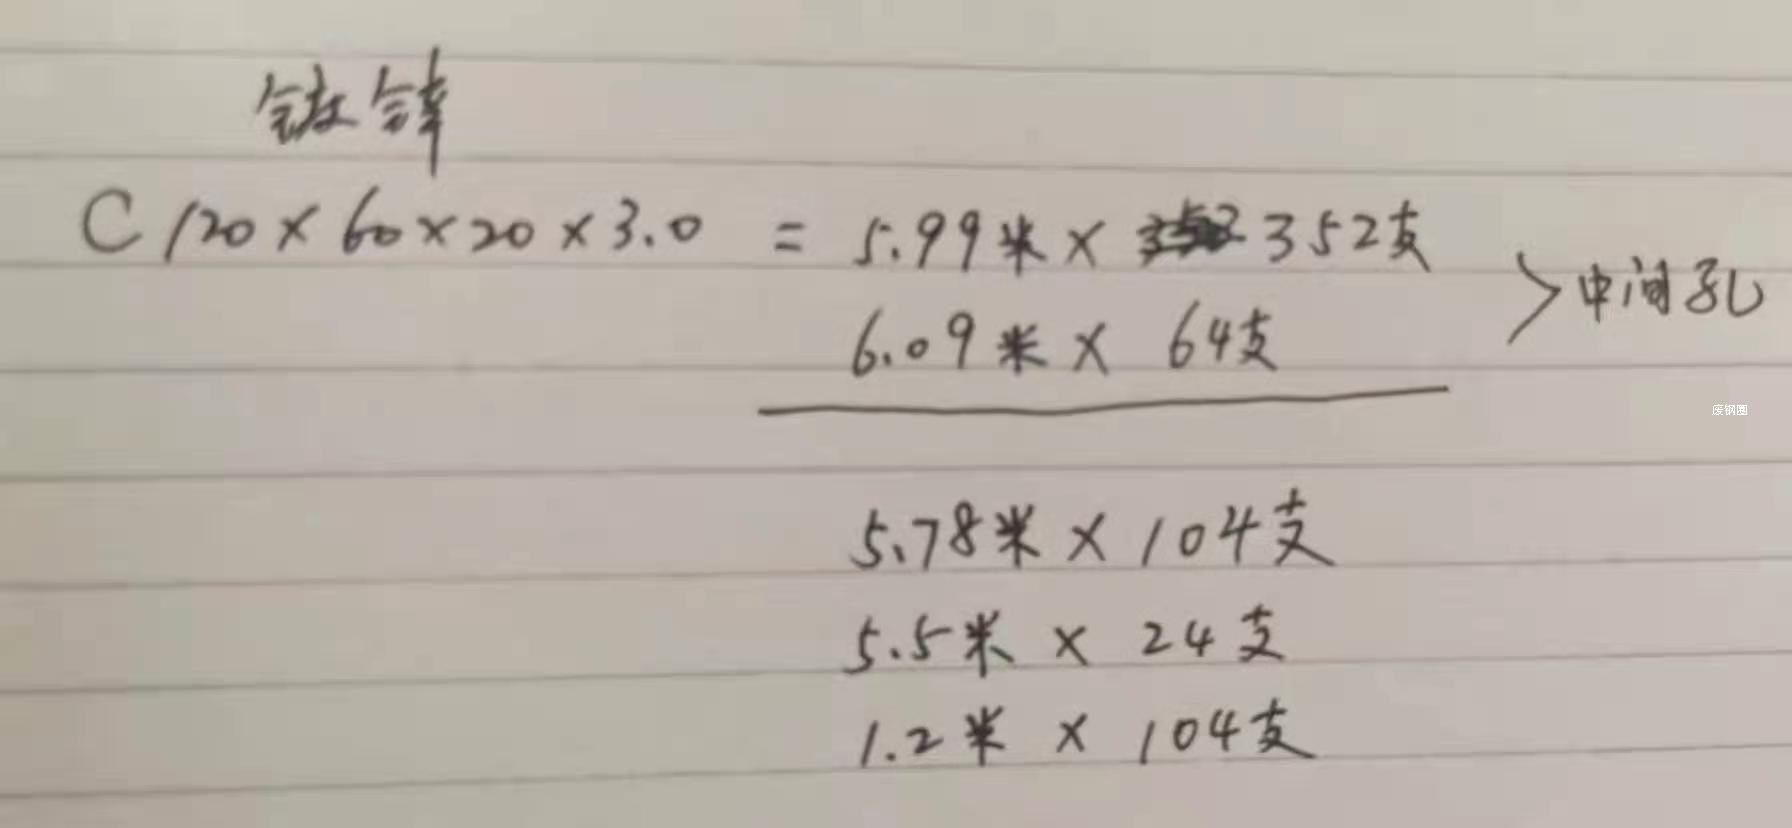 镀锌
C120×60×20×3.0 = 5.99米× 352支
6.09米× 64支
>中间孔
废钢圈
5.78米×104支
5.5米× 24支
1.2米× 104支